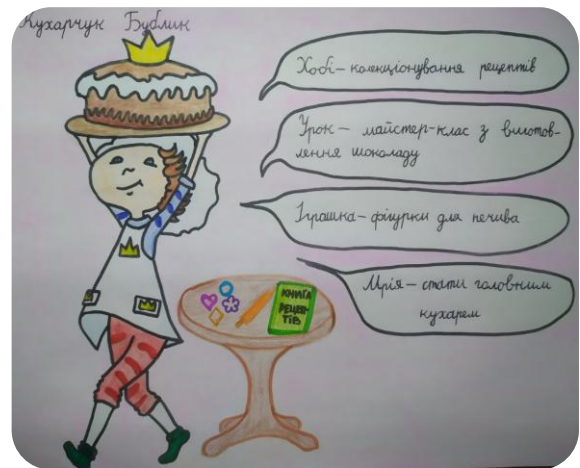 Кухарчук Бублик
Хобі – колекціонування рецептів
Урок – майстер-клас з вигото-
влення шоколаду
Іграшка – фігурки для печива
Мрія – стати головним
кухарем
КНИГА
РЕЦЕП-
ТІВ